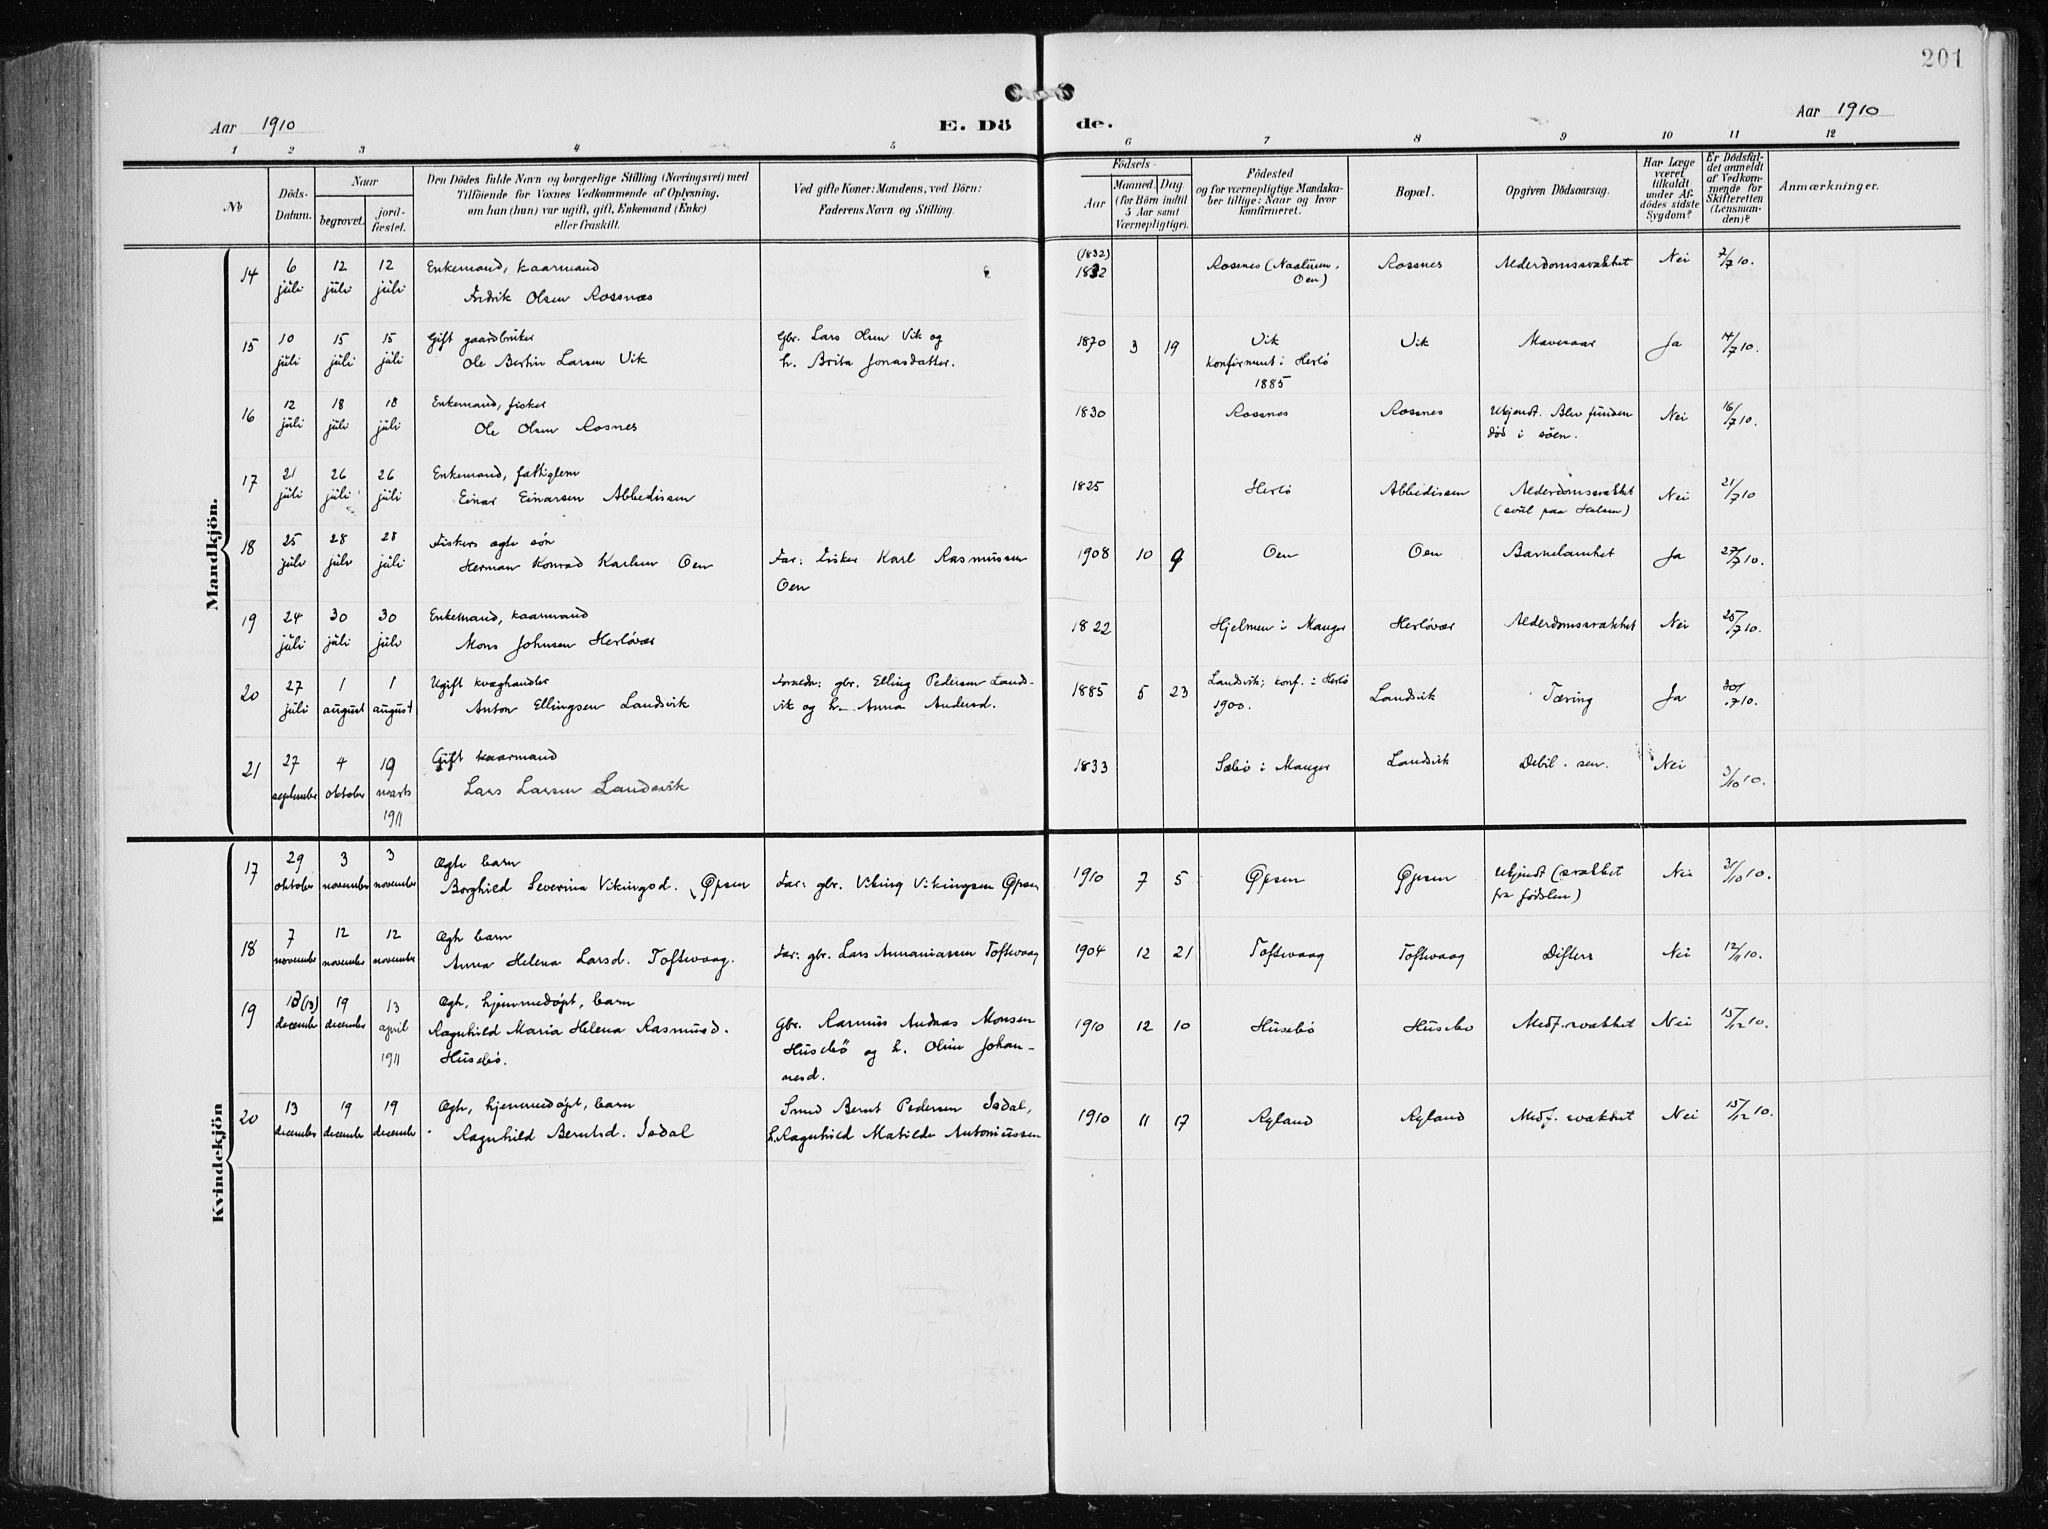 201
Aar 1910
E. Dö de.
Aar 1910
1 2 3 4 5 6 7 8 9 10 11 12
No
Döds-
Datum.
Naar
begravet.
jord-
fæstet.
Den Dödes fulde Navn og borgerlige Stilling (Næringsvei) med
Tilföiende for Voxnes Vedkommende af Oplysning,
om han (hun) var ugift, gift, Enkemand (Enke)
eller fraskilt.
Ved gifte Koner: Mandens, ved Börn:
Faderens Navn og Stilling.
Födsels-
Aar
Maaned. Dag
(for Börn indtil
5 Aar samt
Værnepligtige).
Födested
og for værnepligtige Mandska-
ber tillige: Naar og hvor
konfirmeret.
Bopæl.
Opgiven Dödsaarsag.
Har Læge
været
tilkaldt
under Af-
dödes sidste
Sygdom?
Er Dödsfal-
det anmeldt
af Vedkom-
mende for
Skifteretten
(Lensman-
den)?
Anmærkninger.
Mandkjön.
14 6 juli 12 juli 12 juli Enkemand, kaarmand
Fredrik Olsen Rossnæs
(1832)
1832 Rossnes (Nautnen, Oen) Rossnes Alderdomssvakhet Nei 7/7 10.
15 10 juli 15 juli 15 juli Gift gaardbruker
Ole Bertin Larsen Vik
Gbr. Lars Olsen Vik og
h. Brita Jonasdatter.
1870 3 19 Vik
konfirment i Herlö
1885
Vik Mavesaar Ja 14/7 10.
16 12 juli 18 juli 18 juli Enkemand, fisker
Ole Olsen Rosnes
1830 Rossnes Rossnes Ukjendt. Blev funden
död i söen. Nei 16/7 10.
17 21 juli 26 juli 26 juli Enkemand, fattiglem
Einar Einarsen Abbedissen
1825 Herlö Abbedissen Alderdomssvakhet
(svul paa Halsen) Nei 21/7 10
18 25 juli 28 juli 28 juli Fiskers ægte sön
Herman Konrad Karlsen Oen
Far: Fisker Karl Rasmussen
Oen
1908 10 9 Oen Oen Barnelamhet Ja 27/7 10.
19 24 juli 30 juli 30 juli Enkemand, kaarmand
Mons Johnsen Herlövær
1822 Hjelmen i Manger Herlövær Alderdomssvakhet Nei 25/7 10.
20 27 juli 1 august 1 august Ugift kvæghandler
Anton Ellingsen Landsvik
Foreldr: gbr. Elling Pedersen Lands-
vik og h. Anna Andersd.
1885 5 23 Landsvik; konf. i Herlö
1900. Landsvik Tæring Ja 30/7 10.
21 27 september 4 oktober 19 marts 1911 Gift kaarmand
Lars Larsen Landsvik
1833 Sæbö i Manger Landsvik Debil. sen. Nei 3/10 10.
Kvindekjön
17 29 oktober 3 november 3 november Ægte barn
Borghild Severina Vikingsd. Øpsen
Far: gbr. Viking Vikingsen Øpsen
1910 7 5 Øpsen Øpsen Ukjendt (svakhet
fra födslen) Nei 31/10 10.
18 7 november 12 november 12 november Ægte barn
Anna Helena Larsd. Toftevaag.
Far: gbr. Lars Annaniassen Toftevaag
1904 12 21 Toftevaag Toftevaag Difteri Nei 12/11 10.
19 (13) december 19 december 13 april 1911 Ægte, hjemmedöpt, barn
Ragnhild Maria Helena Rasmusd.
Husebö.
Gbr. Rasmus Andreas Monsen
Husebö og h. Oline Johan-
nesd.
1910 12 10 Husebö Husebö Medf. svakhet Nei 15/12 10.
20 13 december 19 december 19 december Ægte, hjemmedöpt, barn
Ragnhild Berntsd. Isdal
Smed Bernt Pedersen Isdal,
h. Ragnhild Matilde Antoniussen
1910 11 17 Ryland Ryland Medf. svakhet Nei 15/12 10.